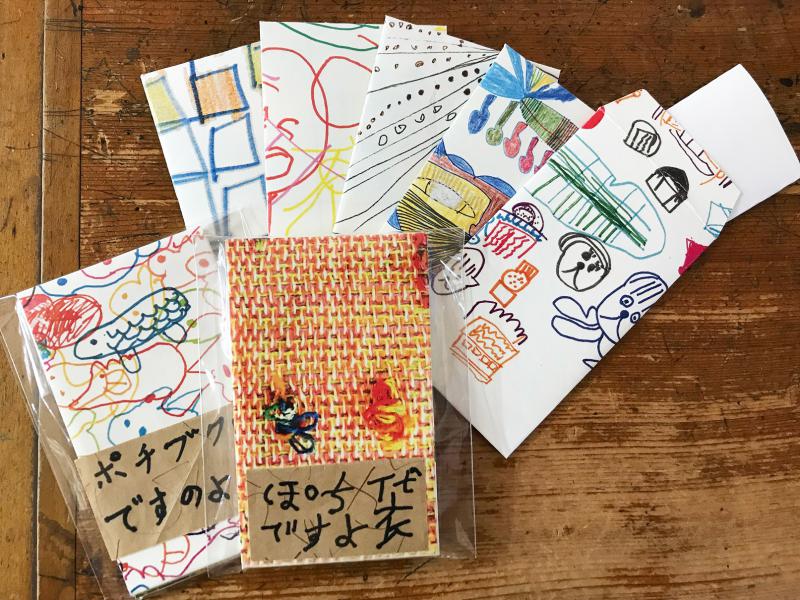 ポチブク
ですのよ
ぽち袋
ですよ